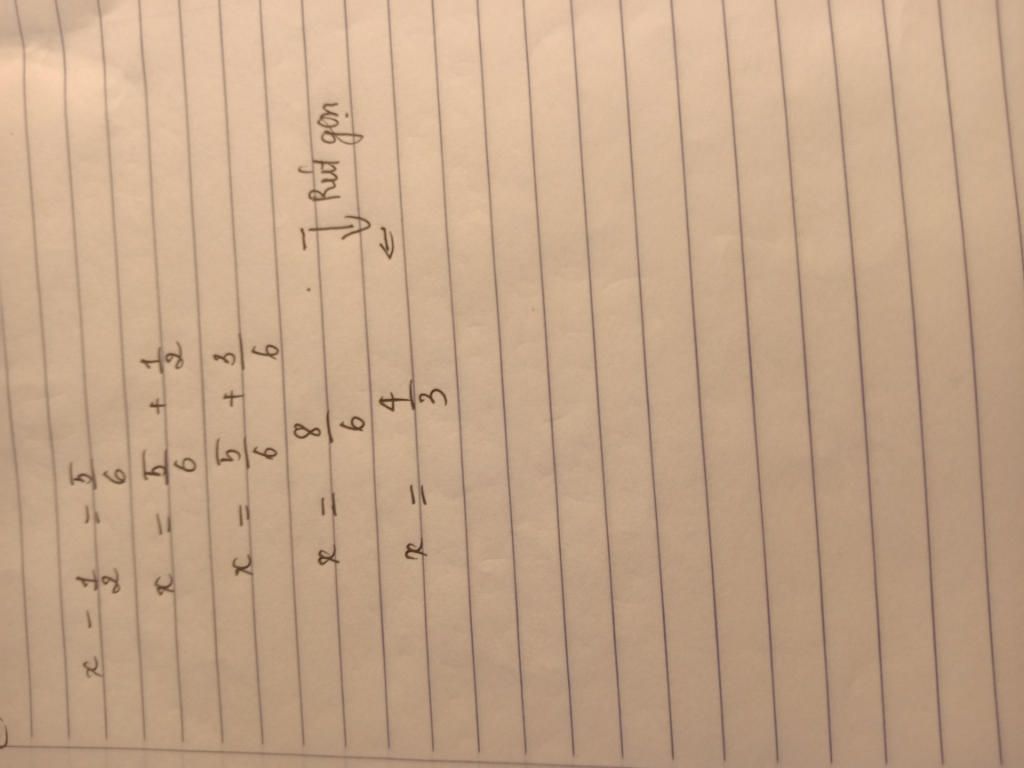 x - 1/2 = 5/6
x = 5/6 + 1/2
x = 5/6 + 3/6
x = 8/6 ↓ Rút gọn
x = 4/3 ←